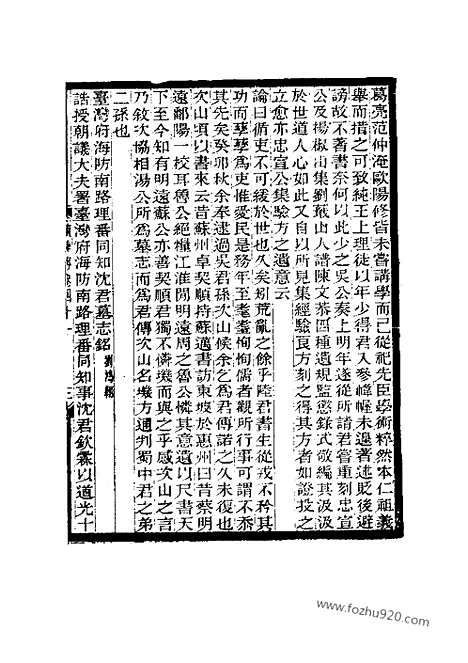 葛亮范仲淹歐陽修皆未嘗講學而已從祀先臣學術粹然本仁祖義
舉而措之可致純王上理徒以年少得君入參峰幄未遑著述貶後避
謗故不著書奈何以此少之吳公奏上明年遂從所請君嘗重刻忠宣
公及楊椒山集劉蕺山人譜陳文恭四種遺規監懲錄式敬編其汲汲
於世道人心如此又自以所見集經驗良方刻之得其方者如證投之
立愈亦忠宣公集驗方之遺意云
論曰循吏不可緩於世也久矣矧荒亂之餘乎陸君書生從戎不矜其
功而孳孳為吏惟愛民是務年至耄耋恂恂儒者觀所行事可謂不忝
其先矣癸卯秋余奉逮過吳君孫次山候余乞為君傳諾之久未復也
次山頃以書來云昔蘇州卓契順持蘇邁書訪東坡於惠州曰昔蔡明
遠鄱陽一校耳魯公絕糧江淮間明遠周之魯公憐其意遺以尺書天
下至今知有明遠蘇公亦善契順君獨不憐璣而與之乎感次山之言
乃敘次協相湯公所為墓志而為君傳次山名璣方通判蜀中君之弟
二孫也
臺灣府海防南路理番同知沈君墓志銘
誥授朝議大夫署臺灣府海防南路理番同知事沈君欽霖以道光十